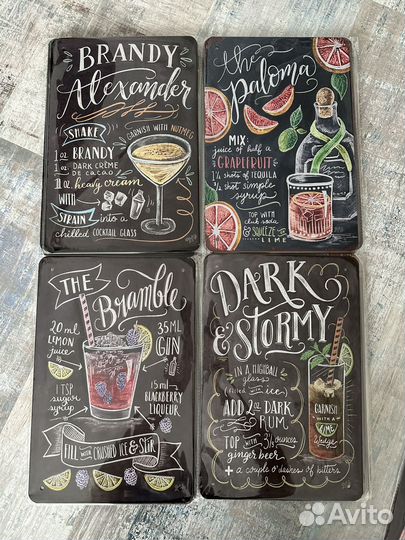 BRANDY
Alexander
SHAKE
1 oz. BRANDY
1 oz. DARK CRÈME
DE CACAO
1 oz. heavy cream
WITH
STRAIN into a
chilled COCKTAIL GLASS
GARNISH WITH NUTMEG
the
Paloma
MIX:
juice of half a
GRAPEFRUIT
1½ shots of TEQUILA
½ shot simple
syrup
TOP WITH
club soda
& SQUEEZE OF
LIME
THE
Bramble
20 ml
LEMON
juice
35 ML
GIN
1 TSP
sugar
syrup
15 ml
BLACKBERRY
LIQUEUR
FILL WITH CRUSHED ICE & STIR
DARK
& STORMY
IN A HIGHBALL
glass
(filled with ice)
ADD 2 oz. DARK
RUM.
TOP WITH 3½ ounces
ginger beer
+ a couple o' dashes of bitters.
GARNISH
WITH A
LIME
Wedge
Avito